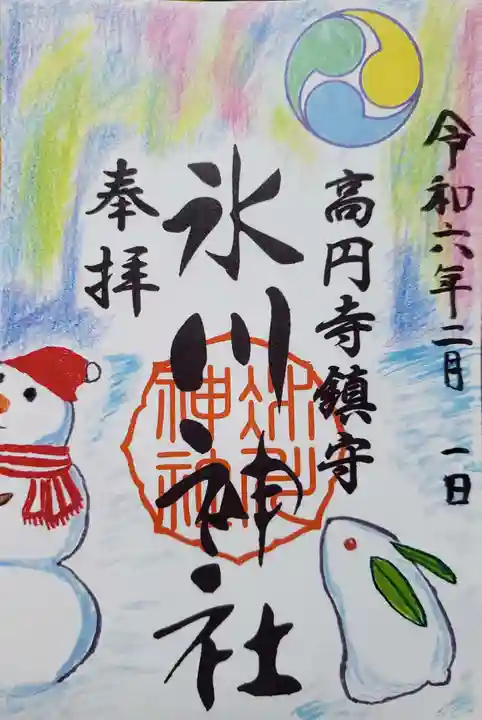 令和六年二月 一日
高円寺鎮守
氷川神社
奉拝